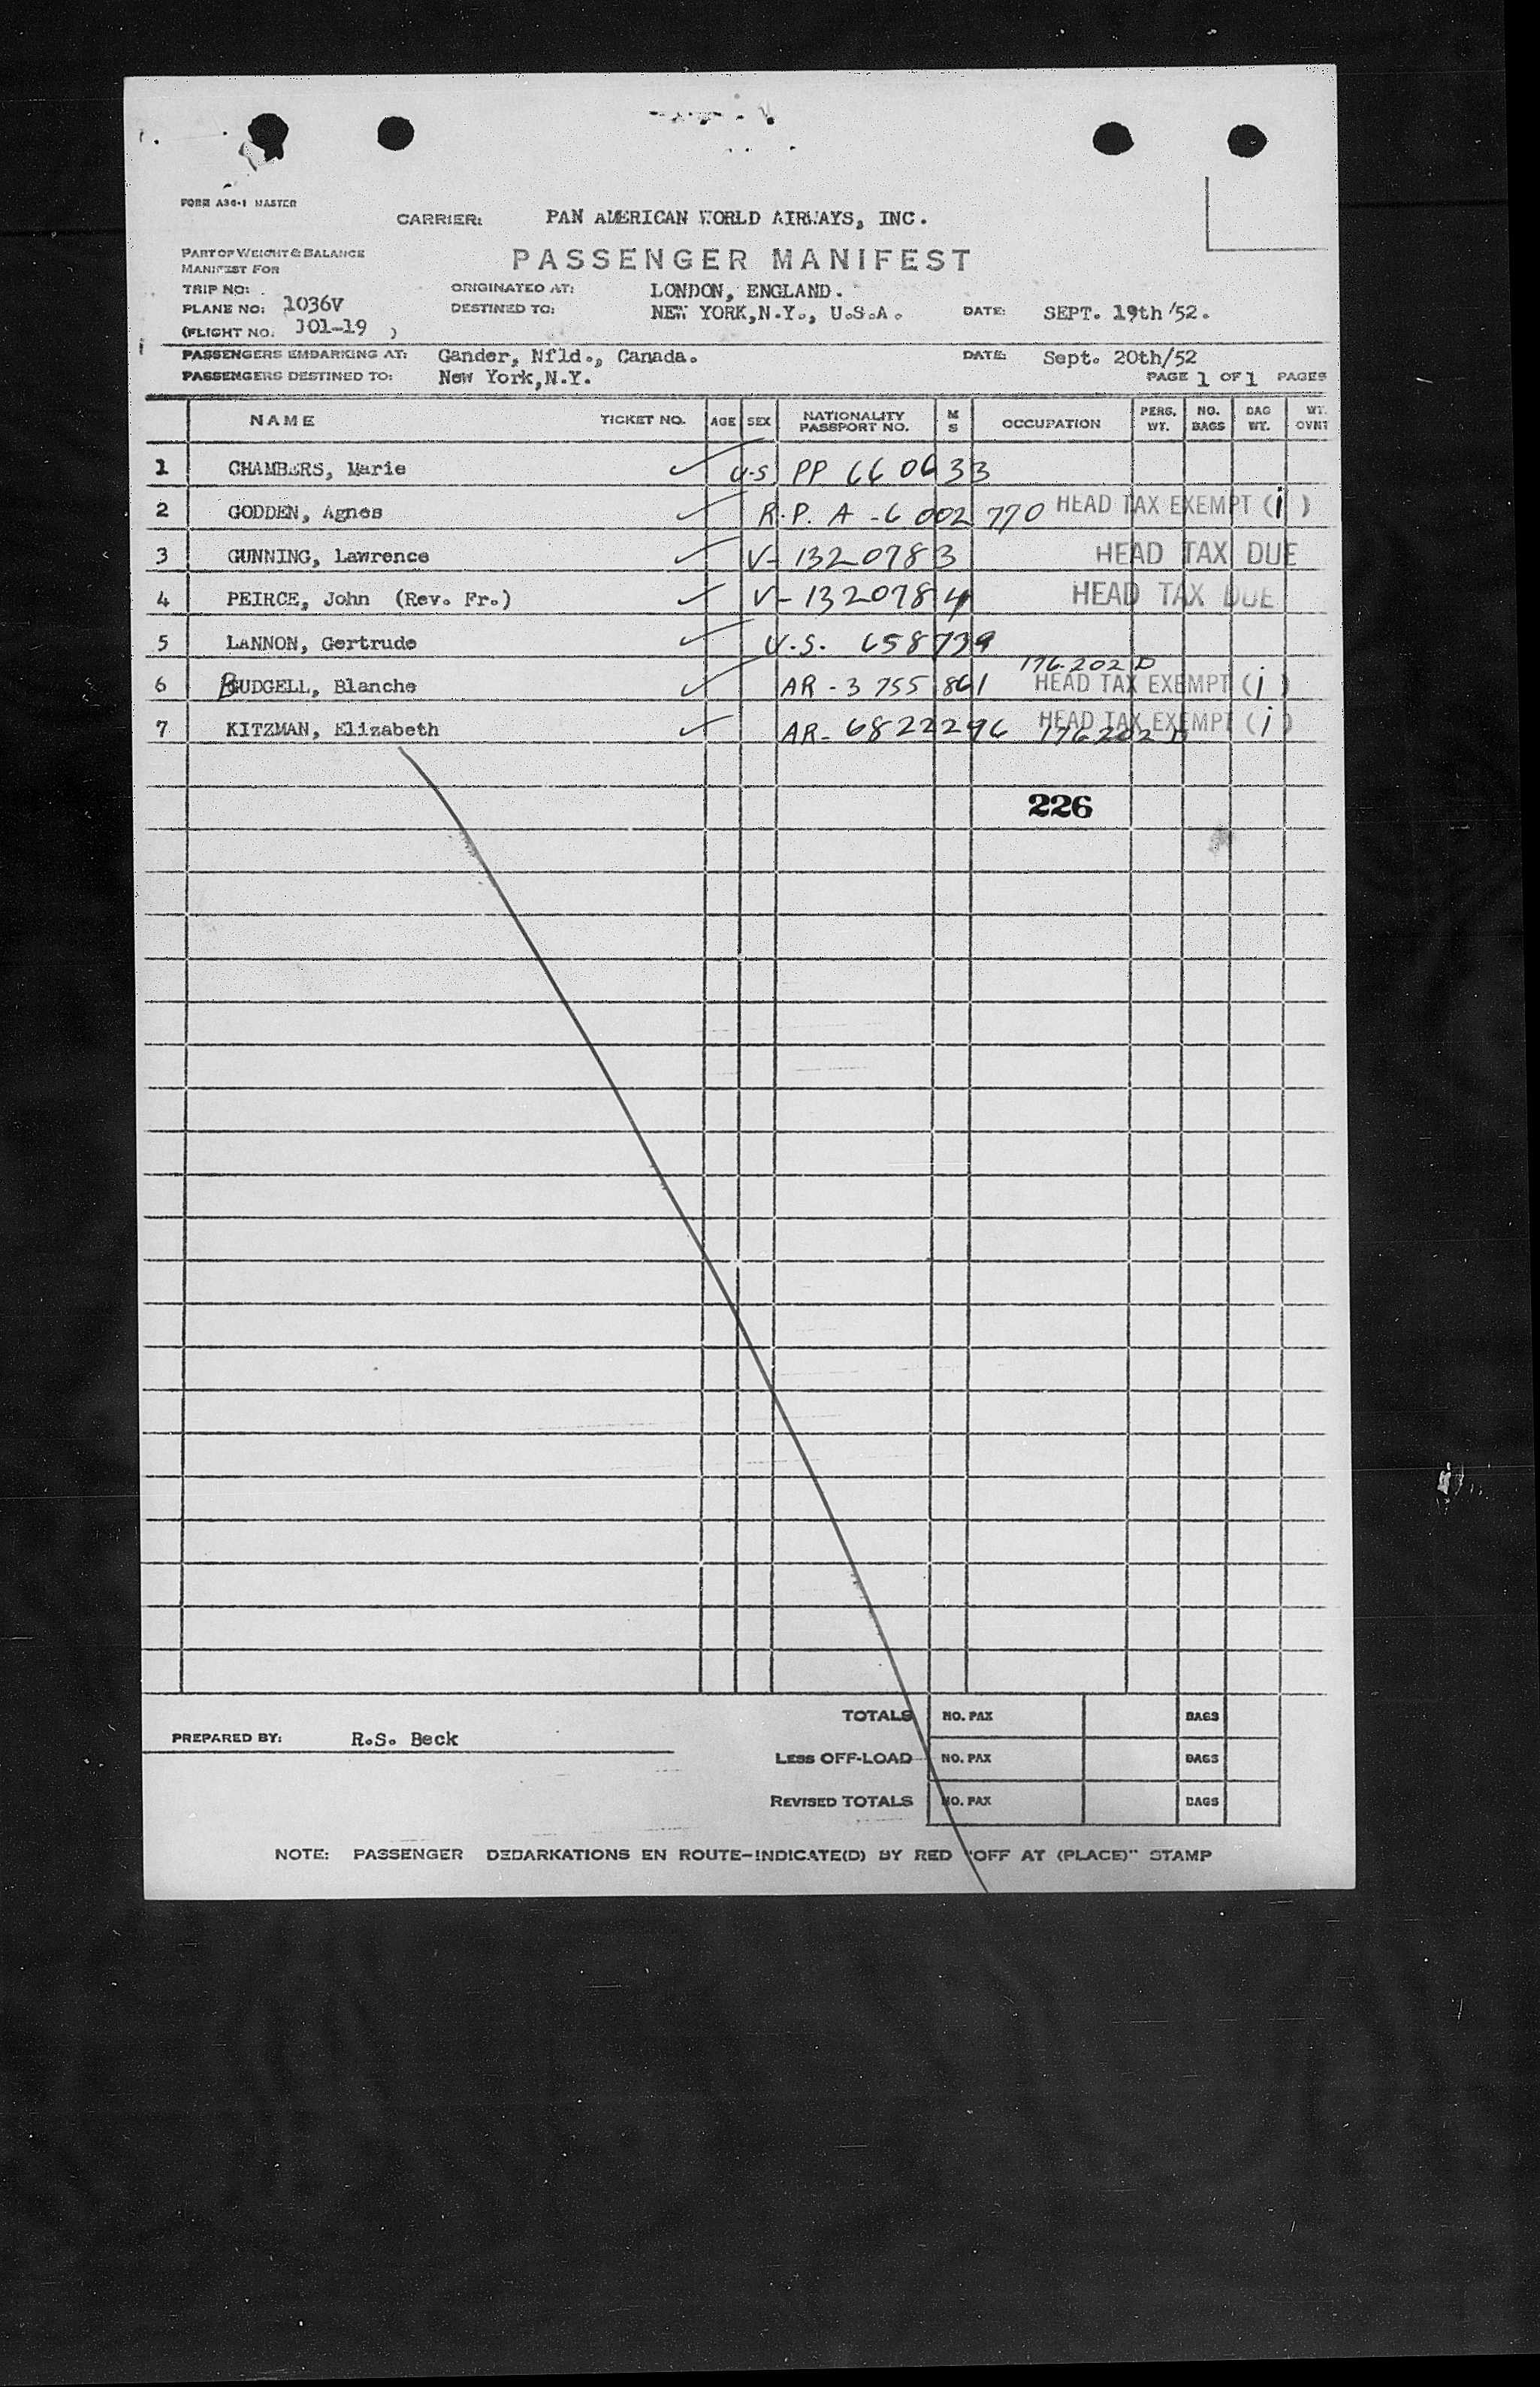 FORM A34-1 MASTER
CARRIER: PAN AMERICAN WORLD AIRWAYS, INC.
PART OF WEIGHT & BALANCE
MANIFEST FOR
PASSENGER MANIFEST
TRIP NO: ORIGINATED AT: LONDON, ENGLAND.
PLANE NO: 1036V DESTINED TO: NEW YORK,N.Y., U.S.A. DATE: SEPT. 19th/52.
(FLIGHT NO. 101-19 )
PASSENGERS EMBARKING AT: Gander, Nfld., Canada. DATE: Sept. 20th/52
PASSENGERS DESTINED TO: New York,N.Y. PAGE 1 OF 1 PAGES
NAME TICKET NO. AGE SEX NATIONALITY PASSPORT NO. M S OCCUPATION PERS. WT. NO. BAGS BAG WT. WT. OVNT
1 CHAMBERS, Marie ✓ U.S PP 660633
2 GODDEN, Agnes ✓ R.P. A-6 002 770 HEAD TAX EXEMPT (i)
3 GUNNING, Lawrence ✓ V-1320783 HEAD TAX DUE
4 PEIRCE, John (Rev. Fr.) ✓ V-1320784 HEAD TAX DUE
5 LANNON, Gertrude ✓ U.S. 658739
176.202 D
6 BUDGELL, Blanche ✓ AR-3 755 861 HEAD TAX EXEMPT (i)
7 KITZMAN, Elizabeth ✓ AR-6822296 HEAD TAX EXEMPT (i)
176.202 D
226
TOTALS NO. PAX BAGS
PREPARED BY: R.S. Beck
LESS OFF-LOAD NO. PAX BAGS
REVISED TOTALS NO. PAX BAGS
NOTE: PASSENGER DEBARKATIONS EN ROUTE-INDICATE(D) BY RED "OFF AT (PLACE)" STAMP